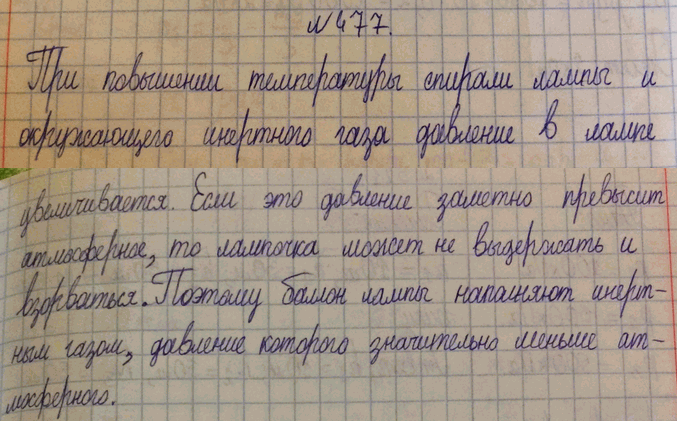 №477.
При повышении температуры спирали лампы и
окружающего инертного газа давление в лампе
увеличивается. Если это давление заметно превысит
атмосферное, то лампочка может не выдержать и
взорваться. Поэтому баллон лампы наполняют инерт-
ным газом, давление которого значительно меньше ат-
мосферного.